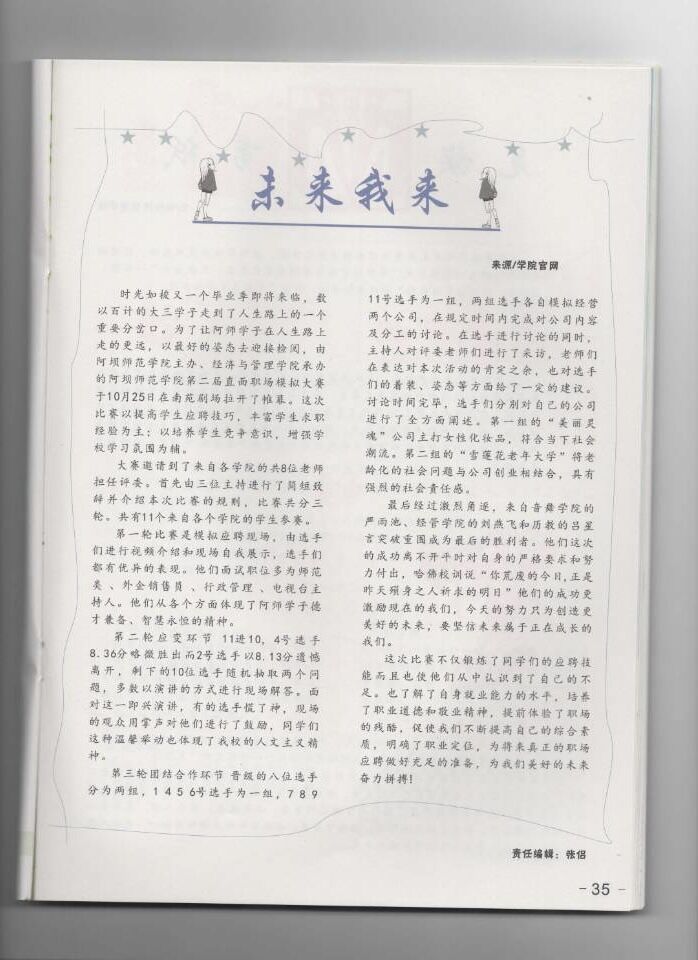 未来我来
来源/学院官网
时光如梭又一个毕业季即将来临，数
以百计的大三学子走到了人生路上的一个
重要分岔口。为了让阿师学子在人生路上
走的更远，以最好的姿态去迎接检阅，由
阿坝师范学院主办、经济与管理学院承办
的阿坝师范学院第二届直面职场模拟大赛
于10月25日在南苑剧场拉开了帷幕。这次
比赛以提高学生应聘技巧，丰富学生求职
经验为主；以培养学生竞争意识，增强学
校学习氛围为辅。
大赛邀请到了来自各学院的共8位老师
担任评委。首先由三位主持进行了简短致
辞并介绍本次比赛的规则，比赛共分三
轮。共有11个来自各个学院的学生参赛。
第一轮比赛是模拟应聘现场，由选手
们进行视频介绍和现场自我展示，选手们
都有优异的表现。他们面试职位多为师范
类 、外企销售员 、行政管理 、电视台主
持人。他们从各个方面体现了阿师学子德
才兼备、智慧永恒的精神。
第二轮应变环节 11进10，4号选手
8.36分略微胜出而2号选手以8.13分遗憾
离开，剩下的10位选手随机抽取两个问
题，多数以演讲的方式进行现场解答。面
对这一即兴演讲，有的选手慌了神，现场
的观众周掌声对他们进行了鼓励，同学们
这种温馨举动也体现了我校的人文主义精
神。
第三轮团结合作环节 晋级的八位选手
分为两组，1 4 5 6号选手为一组，7 8 9
11号选手为一组，两组选手各自模拟经营
两个公司，在规定时间内完成对公司内容
及分工的讨论。在选手进行讨论的同时，
主持人对评委老师们进行了采访，老师们
在表达对本次活动的肯定之余，也对选手
们的着装、姿态等方面给了一定的建议。
讨论时间完毕，选手们分别对自己的公司
进行了全方面阐述。第一组的“美丽灵
魂”公司主打女性化妆品，符合当下社会
潮流。第二组的“雪莲花老年大学”将老
龄化的社会问题与公司创业相结合，具有
强烈的社会责任感。
最后经过激烈角逐，来自音舞学院的
严雨池、经管学院的刘燕飞和历教的吕星
言突破重围成为最后的胜利者。他们这次
的成功离不开平时对自身的严格要求和努
力付出，哈佛校训说“你荒废的今日,正是
昨天殒身之人祈求的明日”他们的成功更
激励现在的我们，今天的努力只为创造更
美好的未来，要坚信未来属于正在成长的
我们。
这次比赛不仅锻炼了同学们的应聘技
能而且也使他们从中认识到了自己的不
足。也了解了自身就业能力的水平，培养
了职业道德和敬业精神，提前体验了职场
的残酷，促使我们不断提高自己的综合素
质，明确了职业定位，为将来真正的职场
应聘做好充足的准备，为我们美好的未来
奋力拼搏!
责任编辑：张侣
- 35 -